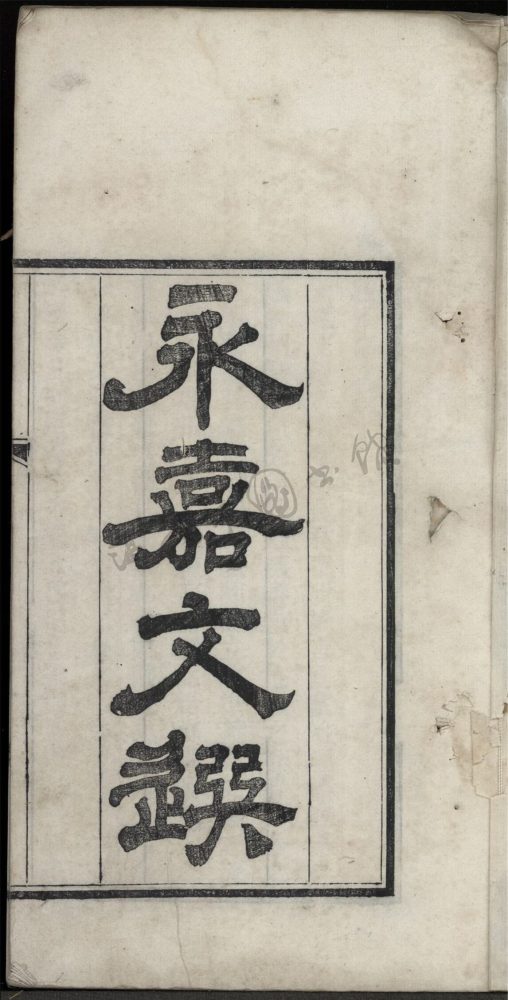 永嘉文選